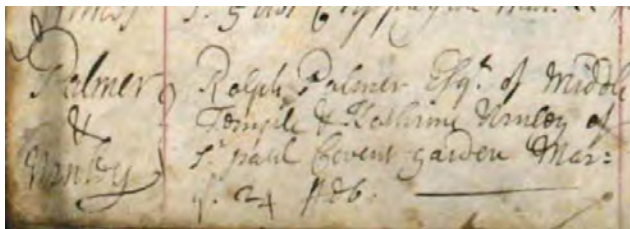 Palmer Ralph Palmer Esqr. of Middle
& Temple & Katherine Urnley of
Urnley St. paul Covent garden Mar:
ye. 24 Feb.